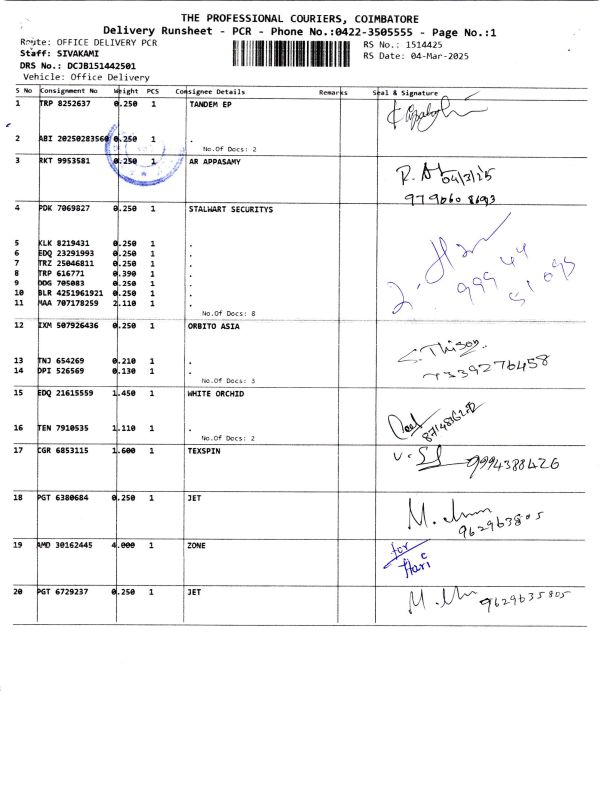 THE PROFESSIONAL COURIERS, COIMBATORE
Delivery Runsheet - PCR - Phone No.:0422-3505555 - Page No.:1
Route: OFFICE DELIVERY PCR
RS No.: 1514425
Staff: SIVAKAMI
RS Date: 04-Mar-2025
DRS No.: DCJB151442501
Vehicle: Office Delivery
S No Consignment No Weight PCS Consignee Details Remarks Seal & Signature
1 TRP 8252637 0.250 1 TANDEM EP
2 ABI 20250283560 0.250 1 .
No.Of Docs: 2
3 RKT 9953581 0.250 1 AR APPASAMY
04/3/25
4 PDK 7069827 0.250 1 STALWART SECURITYS
5 KLK 8219431 0.250 1 .
6 EDQ 23291993 0.250 1 .
7 TRZ 25046811 0.250 1 .
8 TRP 616771 0.390 1 .
9 DDG 705083 0.250 1 .
10 BLR 4251961921 0.250 1 .
11 MAA 707178259 2.110 1 .
No.Of Docs: 8
12 IXM 507926436 0.250 1 ORBITO ASIA
13 TNJ 654269 0.210 1 .
14 DPI 526569 0.130 1 .
7339276458
No.Of Docs: 3
15 EDQ 21615559 1.450 1 WHITE ORCHID
16 TEN 7910535 1.110 1 .
No.Of Docs: 2
17 CGR 6853115 1.600 1 TEXSPIN
9994388426
18 PGT 6380684 0.250 1 JET
9629635805
19 AMD 30162445 4.000 1 ZONE
for
Hari
20 PGT 6729237 0.250 1 JET
9629635805